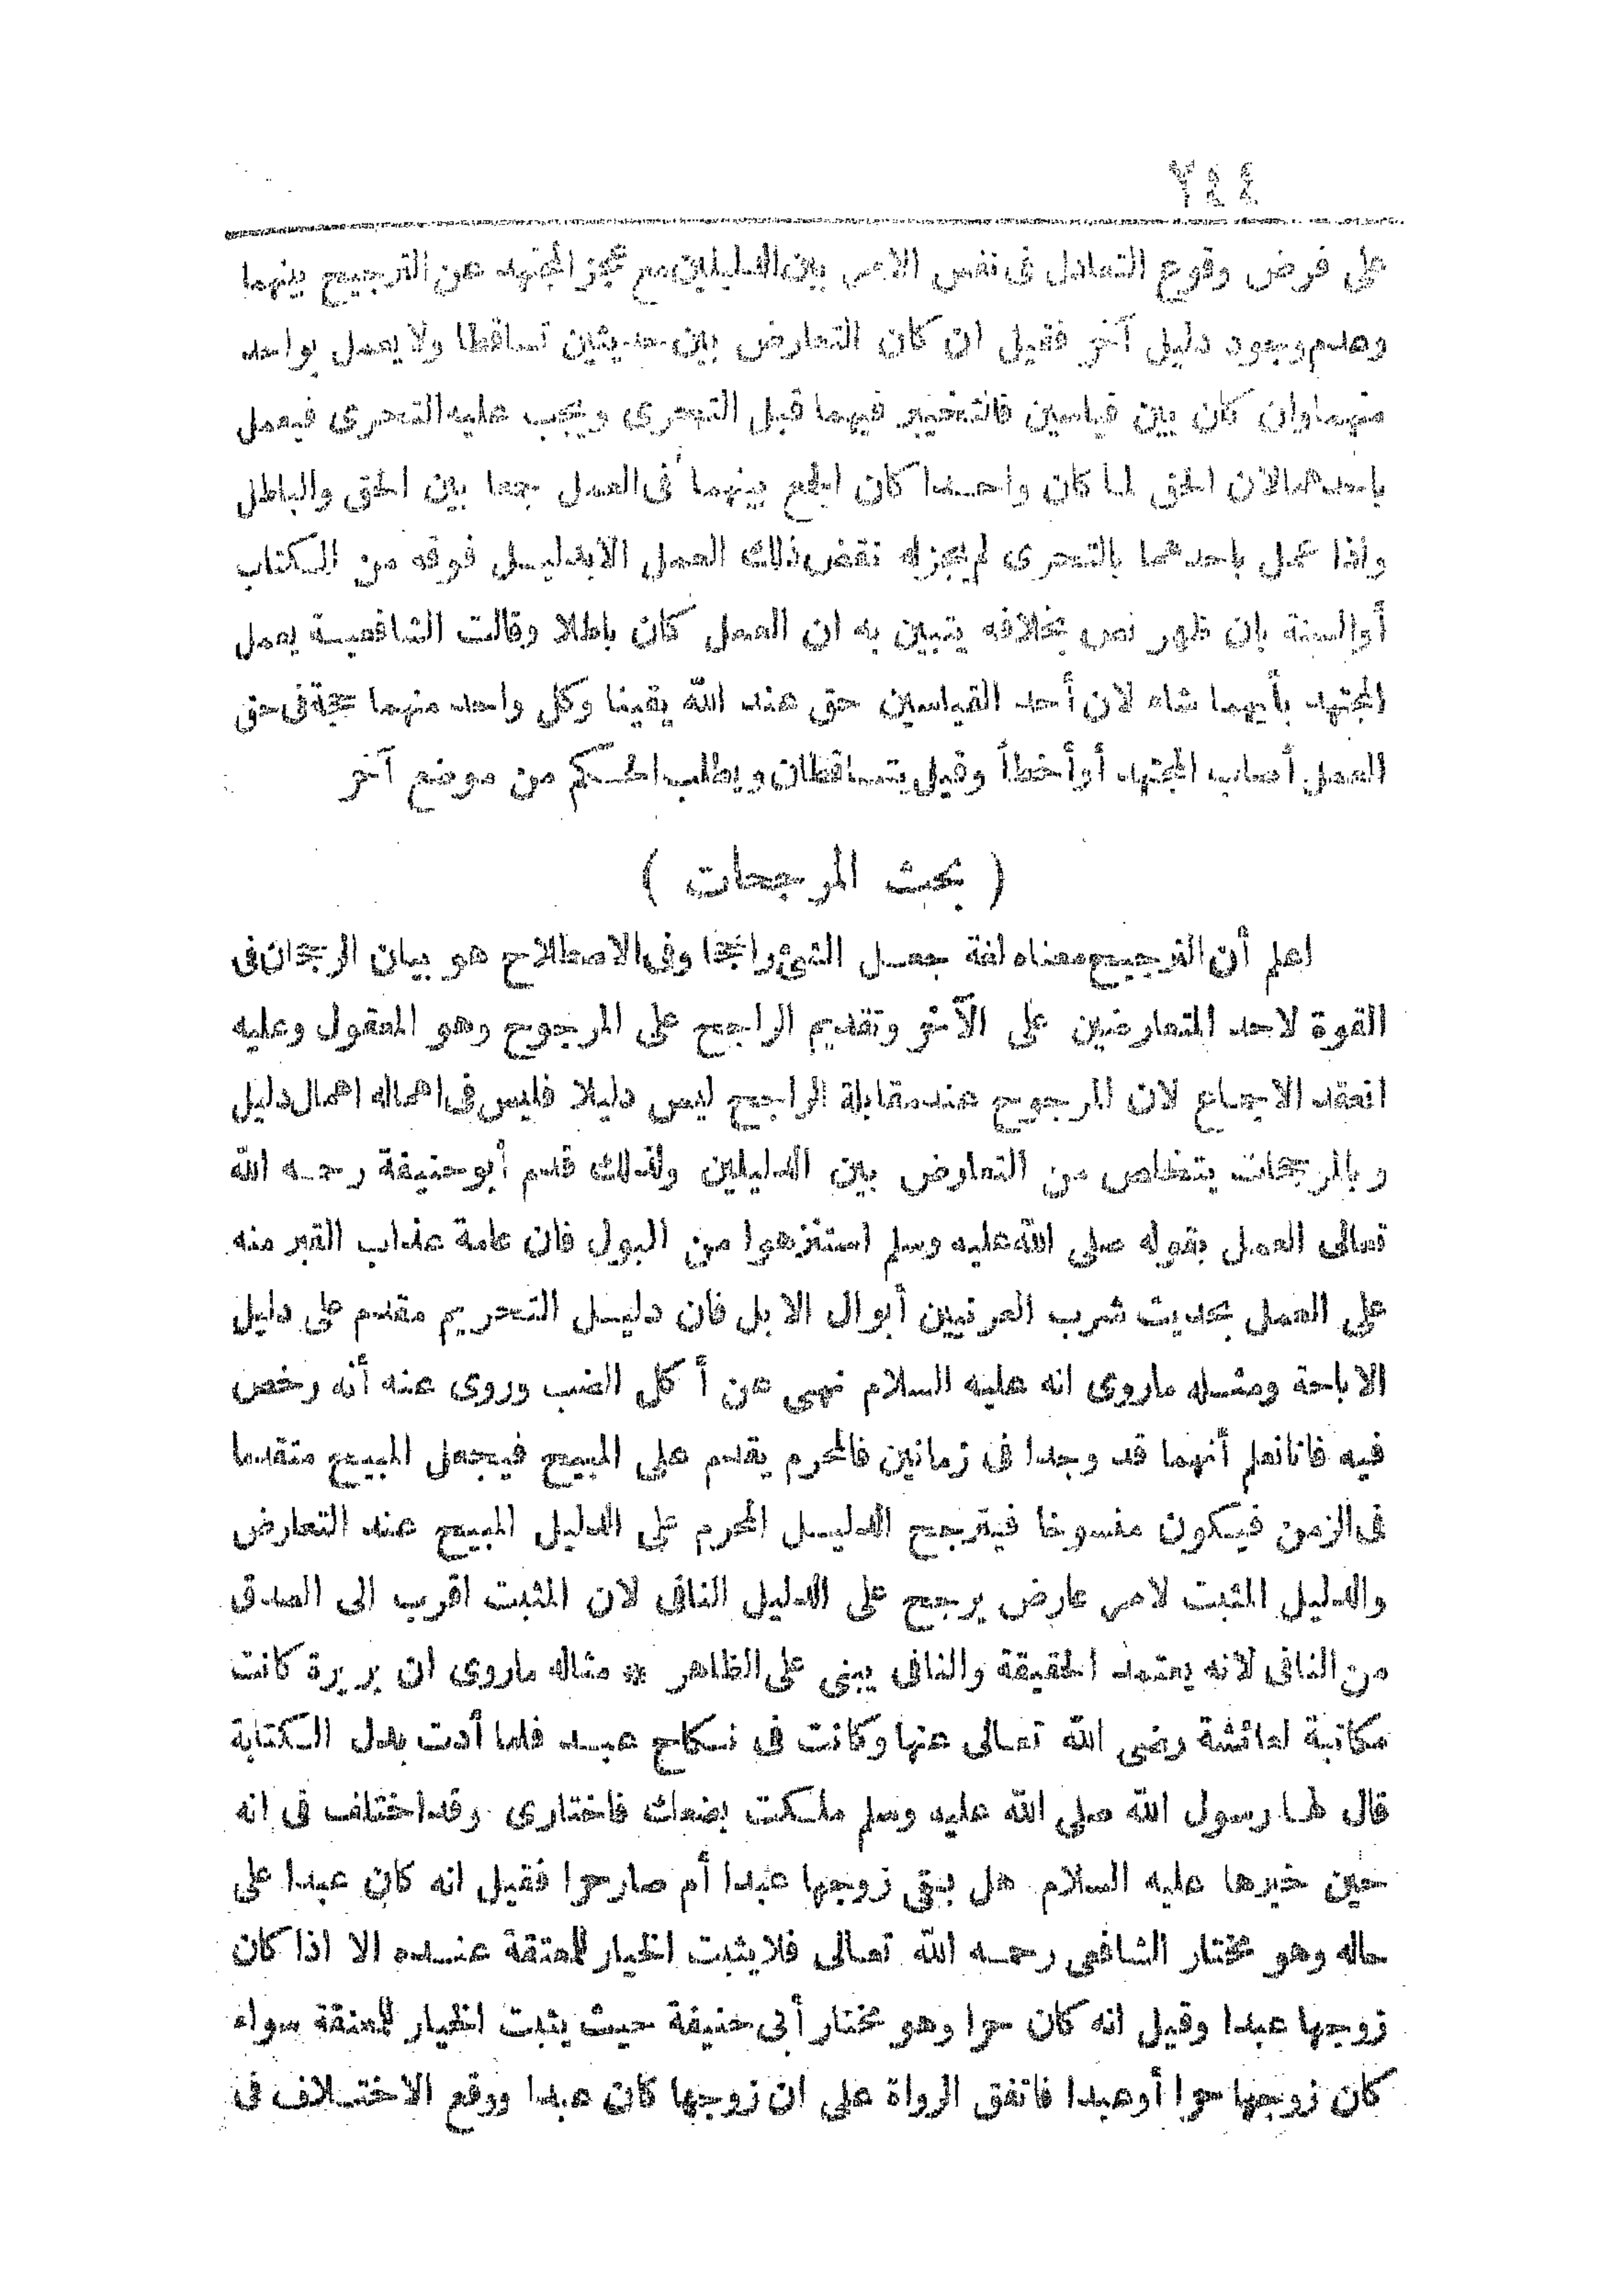 ٢٤٤
على فرض وقوع التعادل فى نفس الامر بين الدليلين مع عجز المجتهد عن الترجيح بينهما
وعدم وجود دليل آخر فقيل ان كان التعارض بين حديثين تساقطا ولا يعمل بواحد
منهما وان كان بين قياسين فالتخيير فيهما قبل التحرى ويجب عليه التحرى فيعمل
باحدهما لان الحق لما كان واحدا كان الجمع بينهما فى العمل جمعا بين الحق والباطل
واذا عمل باحدهما بالتحرى لم يجزله نقض ذلك العمل الا بدليل فوقه من الكتاب
أو السنة بان ظهر نص بخلافه يتبين به ان العمل كان باطلا وقالت الشافعية يعمل
المجتهد بأيهما شاء لان أحد القياسين حق عند الله يقينا وكل واحد منهما حجة فى حق
العمل أصاب المجتهد أو أخطأ وقيل يتساقطان ويطلب الحكم من موضع آخر
( بحث المرجحات )
اعلم أن الترجيح معناه لغة جعل الشئ راجحا وفى الاصطلاح هو بيان الرجحان فى
القوة لاحد المتعارضين على الآخر وتقديم الراجح على المرجوح وهو المعقول وعليه
انعقد الاجماع لان المرجوح عند مقابلة الراجح ليس دليلا فليس فى اهماله اهمال دليل
وبالمرجحات يتخلص من التعارض بين الدليلين ولذلك قدم أبو حنيفة رحمه الله
تعالى العمل بقوله صلى الله عليه وسلم استنزهوا من البول فان عامة عذاب القبر منه
على العمل بحديث شرب العرنيين أبوال الابل فان دليل التحريم مقدم على دليل
الاباحة ومثله ماروى انه عليه السلام نهى عن أكل الضب وروى عنه أنه رخص
فيه فانا نعلم أنهما قد وجدا فى زمانين فالمحرم يقدم على المبيح فيجعل المبيح متقدما
فى الزمن فيكون منسوخا فيترجح الدليل المحرم على الدليل المبيح عند التعارض
والدليل المثبت لامر عارض يرجح على الدليل النافى لان المثبت اقرب الى الصدق
من النافى لانه يعتمد الحقيقة والنافى يبنى على الظاهر * مثاله ماروى ان بريرة كانت
مكاتبة لعائشة رضى الله تعالى عنها وكانت فى نكاح عبد فلما أدت بدل الكتابة
قال لها رسول الله صلى الله عليه وسلم ملكت بضعك فاختارى وقد اختلف فى انه
حين خيرها عليه السلام هل بقى زوجها عبدا أم صار حرا فقيل انه كان عبدا على
حاله وهو مختار الشافعى رحمه الله تعالى فلا يثبت الخيار للمعتقة عنده الا اذا كان
زوجها عبدا وقيل انه كان حرا وهو مختار أبى حنيفة حيث يثبت الخيار للمعتقة سواء
كان زوجها حرا أو عبدا فاتفق الرواة على ان زوجها كان عبدا ووقع الاختلاف فى